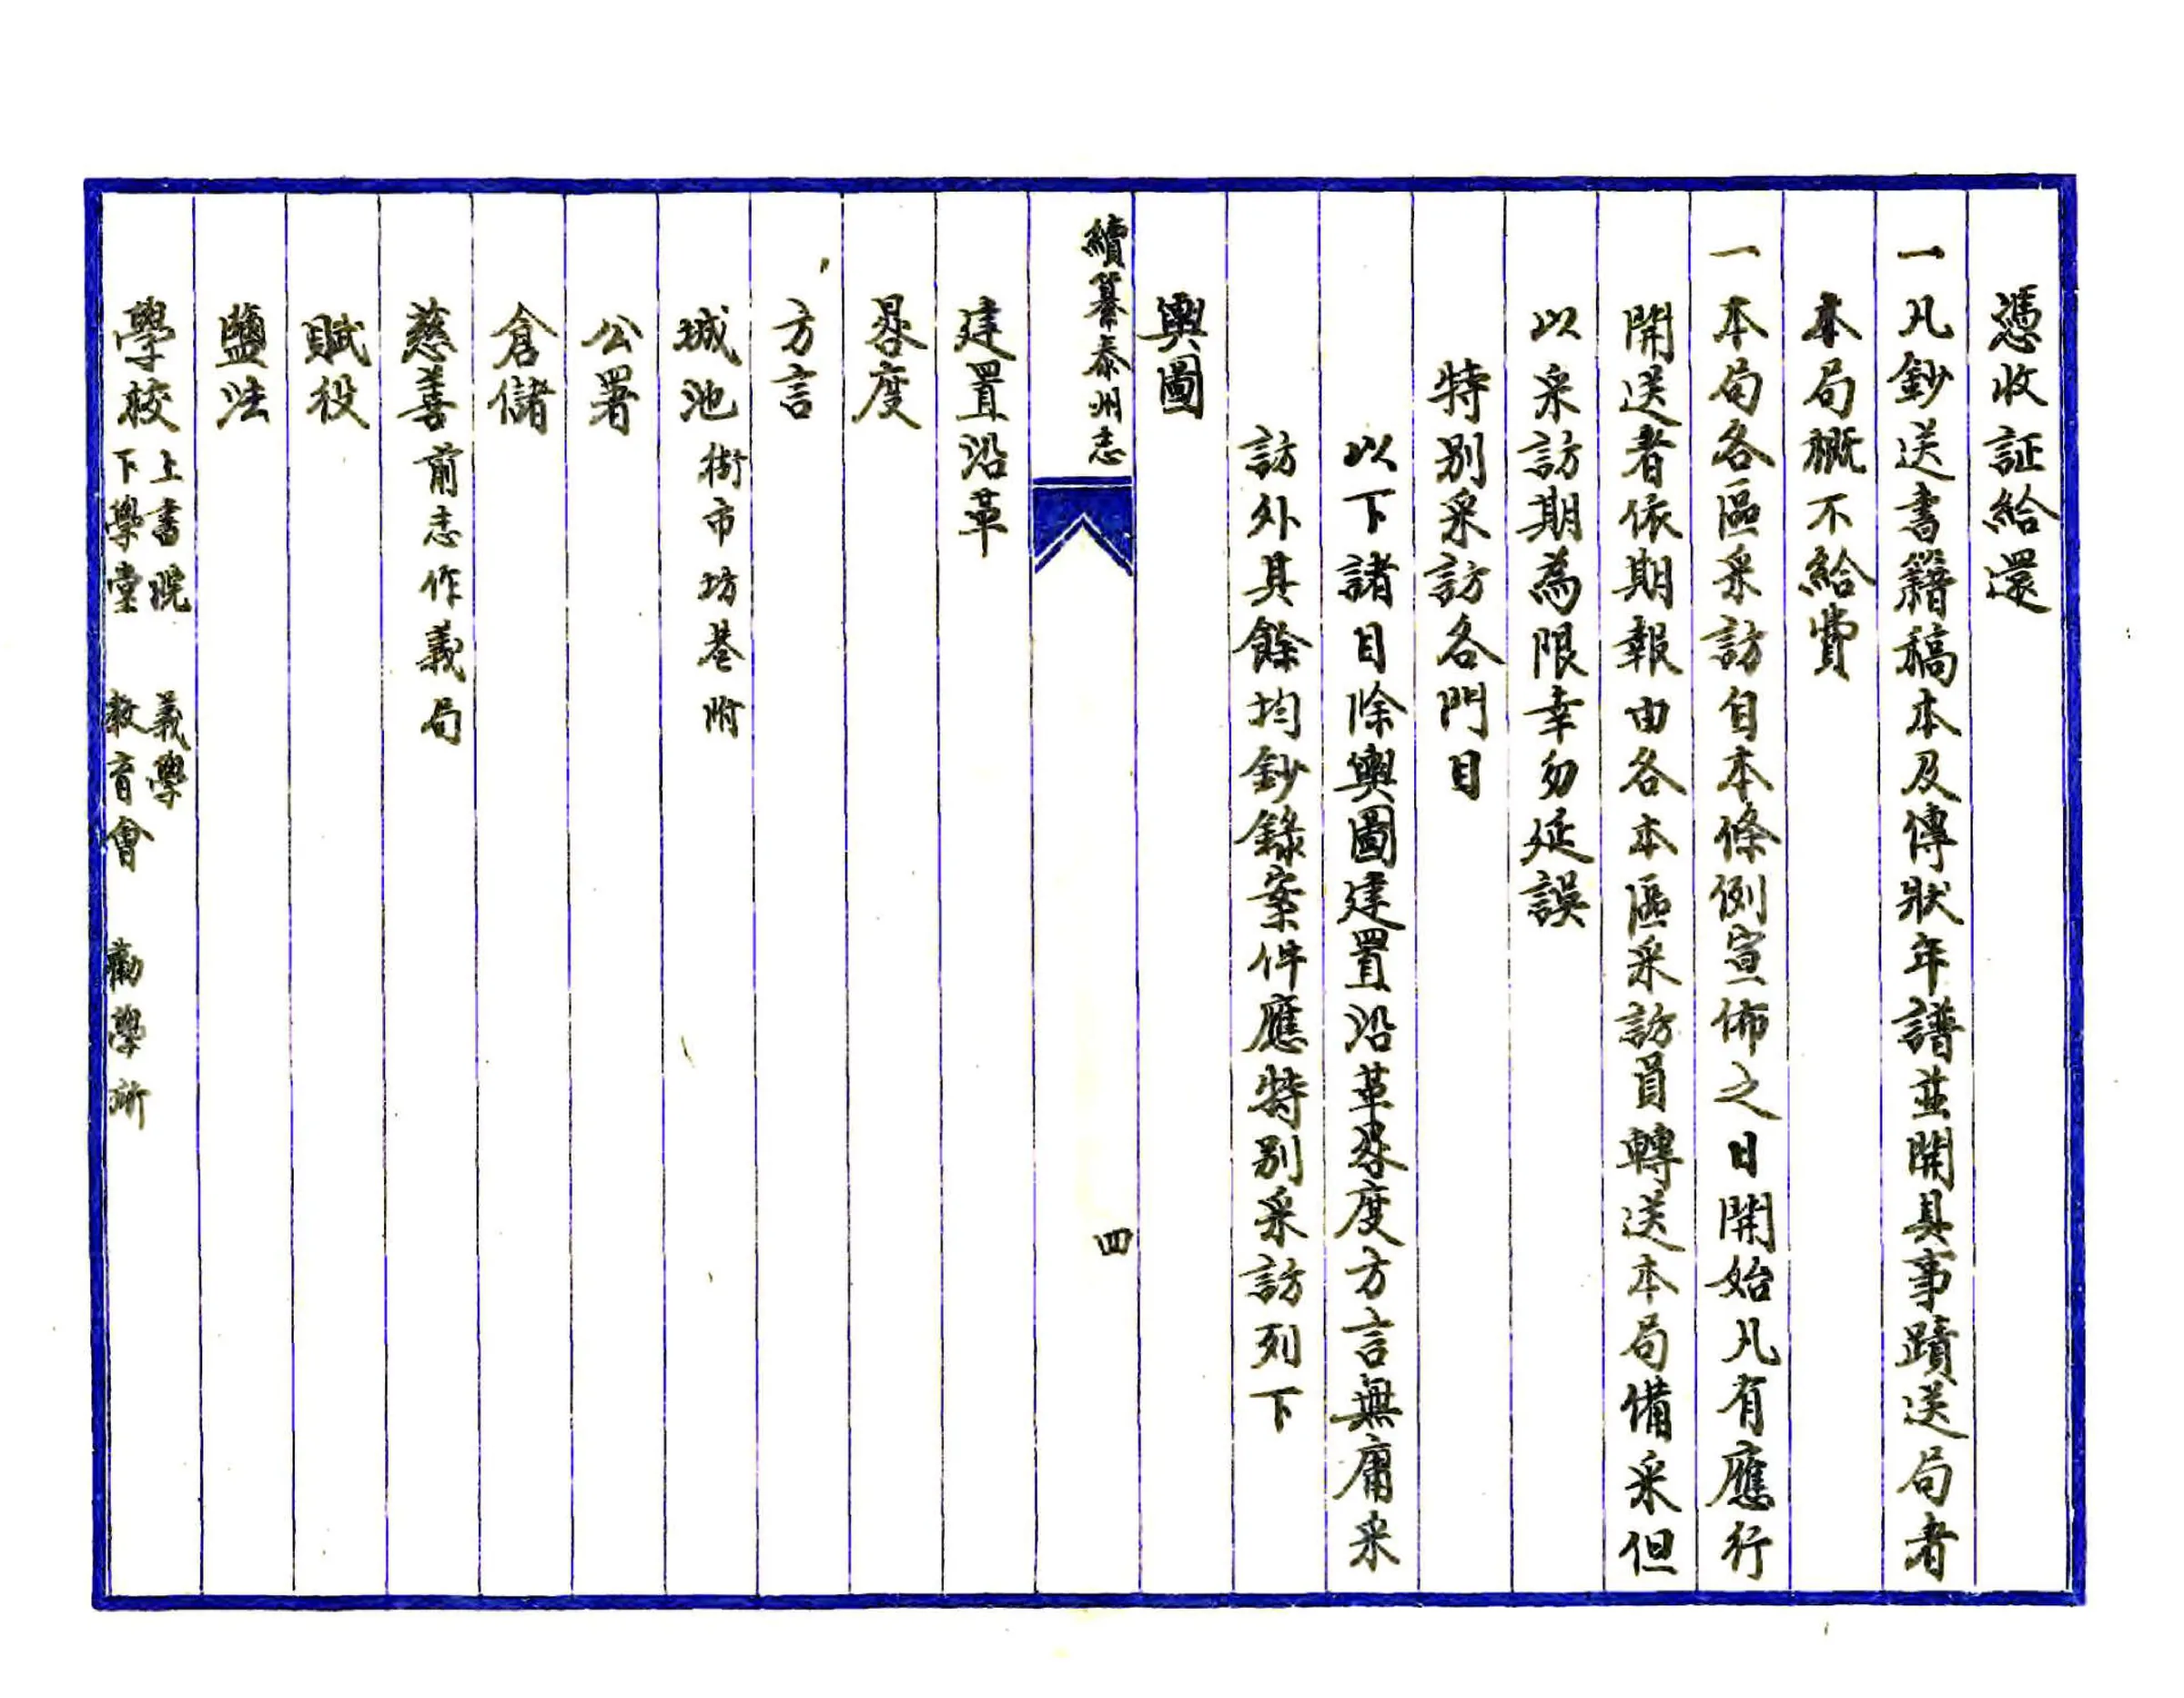 憑收証給還
一凡鈔送書籍稿本及傳狀年譜並開具事蹟送局者
本局概不給費
一本局各區采訪自本條例宣佈之日開始凡有應行
開送者依期報由各本區采訪員轉送本局備采但
以采訪期為限幸勿延誤
特別采訪各門目
以下諸目除輿圖建置沿革晷度方言無庸采
訪外其餘均鈔錄案件應特別采訪列下
輿圖
續纂泰州志
四
建置沿革
晷度
方言
城池 街市坊巷附
公署
倉儲
慈善 前志作義局
賦役
鹽法
學校 上書院 義學
下學堂 教育會 勸學所